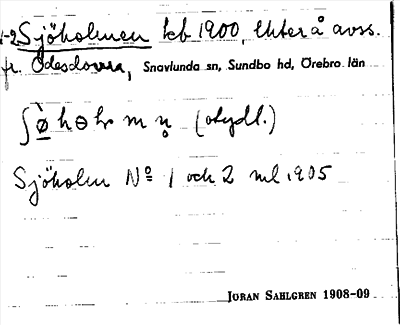 1-2 Sjöholmen kb 1900, Ekter å avss.
fr. Odesdovra, Snavlunda sn, Sundbo hd, Örebro län
(otydl.)
Sjöholm Nº 1 och 2 ml. 1905
JÖRAN SAHLGREN 1908-09